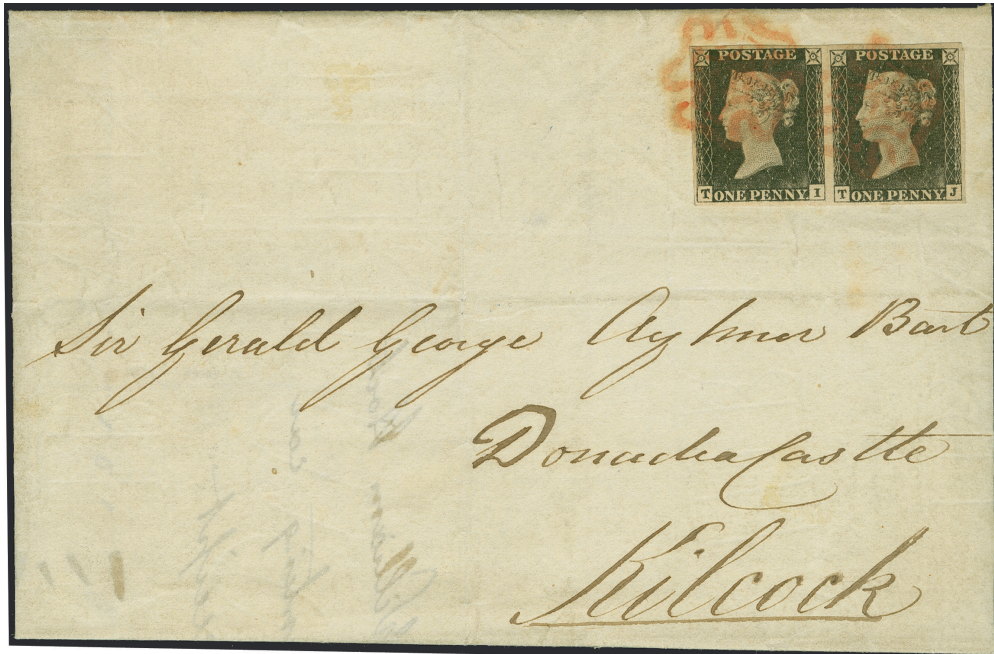 POSTAGE POSTAGE
T ONE PENNY. I T ONE PENNY. J
Sir Gerald George Aylmer Bart
Donadea Castle
Kilcock